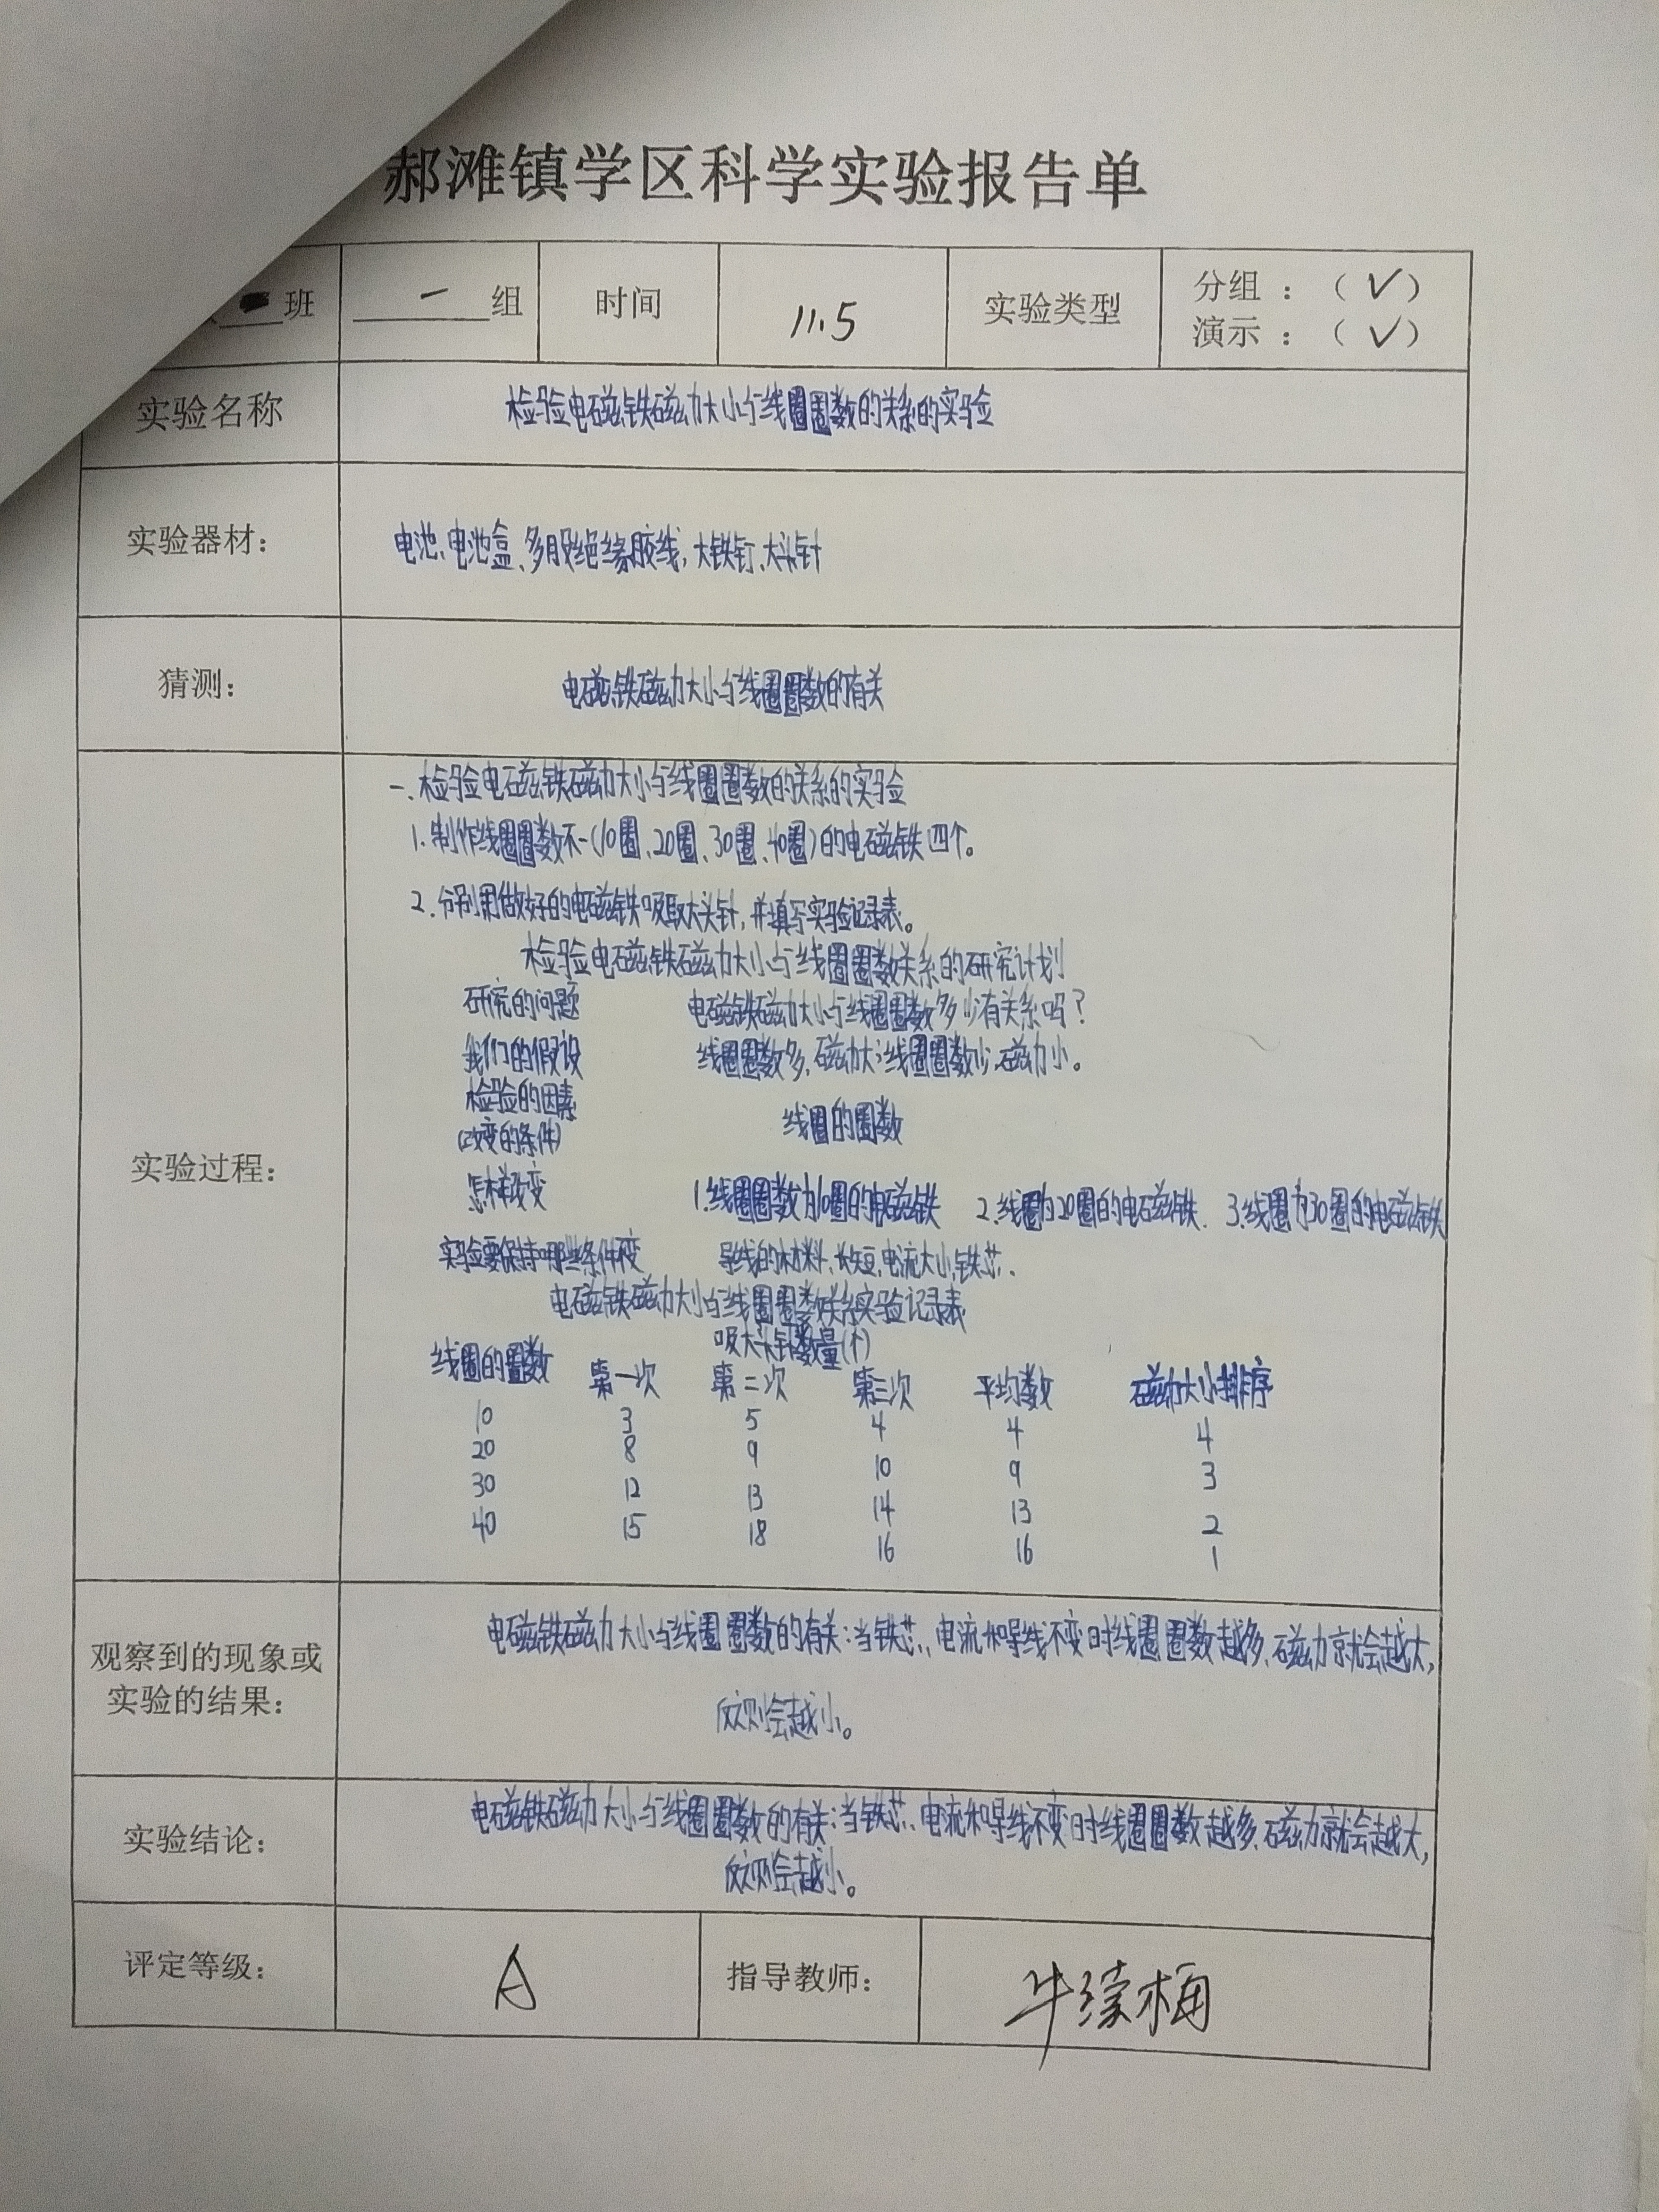 郝滩镇学区科学实验报告单
班 一 组 时间 11.5 实验类型 分组：（✓） 演示：（✓）
实验名称 检验电磁铁磁力大小与线圈圈数的关系的实验
实验器材： 电池、电池盒、多股绝缘胶线，大铁钉、大头针
猜测： 电磁铁磁力大小与线圈圈数的有关
实验过程：
一、检验电磁铁磁力大小与线圈圈数的关系的实验
1.制作线圈圈数不一(10圈、20圈、30圈、40圈)的电磁铁四个。
2.分别用做好的电磁铁吸取大头针，并填写实验记录表。
检验电磁铁磁力大小与线圈圈数关系的研究计划
研究的问题 电磁铁磁力大小与线圈圈数多少有关系吗？
我们的假设 线圈圈数多，磁力大；线圈圈数少，磁力小。
检验的因素
(改变的条件) 线圈的圈数
怎样改变 1.线圈圈数为10圈的电磁铁 2.线圈为20圈的电磁铁. 3.线圈为30圈的电磁铁
实验要保持哪些条件不变 导线的材料，长短，电流大小，铁芯.
电磁铁磁力大小与线圈圈数关系实验记录表
吸大头针数量(个)
线圈的圈数 第一次 第二次 第三次 平均数 磁力大小排序
10 3 5 4 4 4
20 8 9 10 9 3
30 12 13 14 13 2
40 15 18 16 16 1
观察到的现象或
实验的结果：
电磁铁磁力大小与线圈圈数的有关：当铁芯、电流和导线不变时线圈圈数越多、磁力就会越大，
反之则会越小。
实验结论：
电磁铁磁力大小与线圈圈数的有关：当铁芯、电流和导线不变时线圈圈数越多、磁力就会越大，
反之则会越小。
评定等级： A 指导教师：